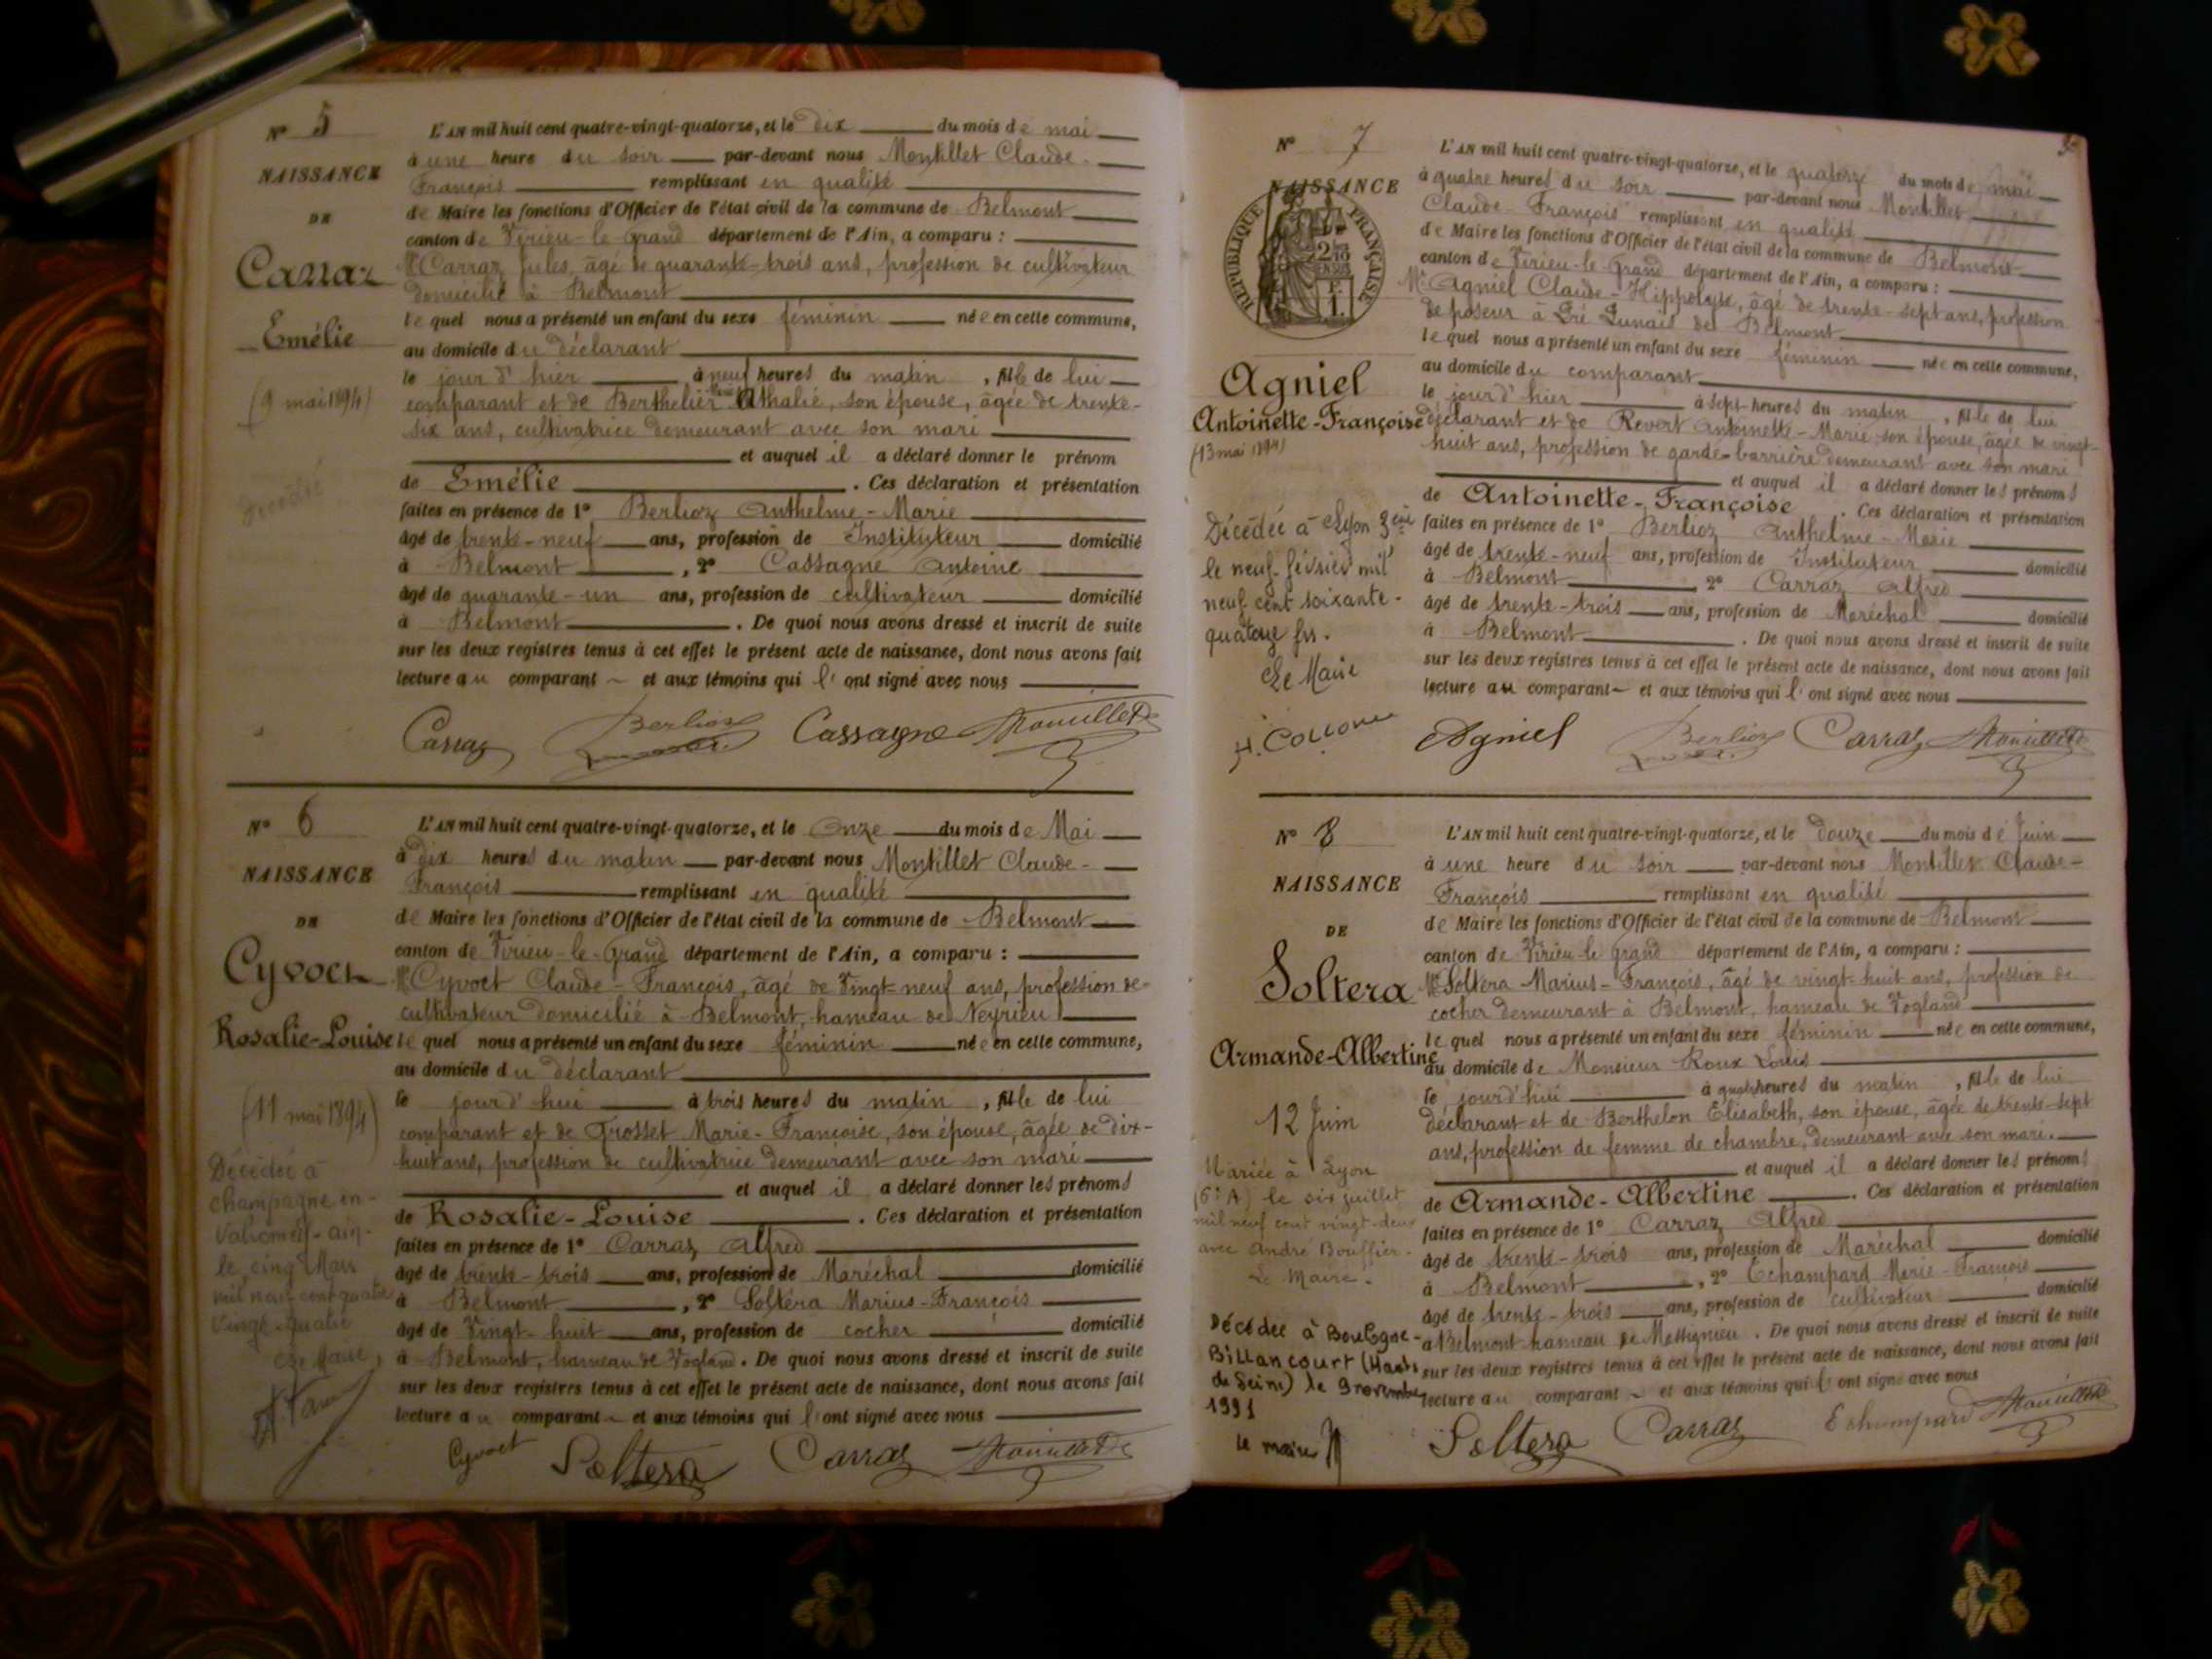 N° 5
NAISSANCE
DE
Carraz
Emélie
(9 mai 1894)
décédée
L'AN mil huit cent quatre-vingt-quatorze, et le dix du mois de mai
à une heure du soir par-devant nous Montillet Claude-
François remplissant en qualité
de Maire les fonctions d'Officier de l'état civil de la commune de Belmont
canton de Virieu-le-Grand département de l'Ain, a comparu :
Mr Carraz Jules, âgé de quarante-trois ans, profession de cultivateur
domicilié à Belmont
lequel nous a présenté un enfant du sexe féminin née en cette commune,
au domicile du déclarant
le jour d'hier à neuf heures du matin, fille de lui
comparant et de Berthelier Athalie, son épouse, âgée de trente-
six ans, cultivatrice demeurant avec son mari
et auquel il a déclaré donner le prénom
de Emélie . Ces déclaration et présentation
faites en présence de 1° Berlioz Anthelme-Marie
âgé de trente-neuf ans, profession de Instituteur domicilié
à Belmont, 2° Cassagne Antoine
âgé de quarante-un ans, profession de cultivateur domicilié
à Belmont . De quoi nous avons dressé et inscrit de suite
sur les deux registres tenus à cet effet le présent acte de naissance, dont nous avons fait
lecture au comparant et aux témoins qui l'ont signé avec nous
Carraz Berlioz Cassagne Montillet
N° 6
NAISSANCE
DE
Cyvoct
Rosalie-Louise
(11 mai 1894)
Décédée à
Champagne en-
Valromey-ain-
le cinq Mars
mil neuf cent quatre
vingt-quatre
Le Maire,
L'AN mil huit cent quatre-vingt-quatorze, et le onze du mois de Mai
à dix heures du matin par-devant nous Montillet Claude-
François remplissant en qualité
de Maire les fonctions d'Officier de l'état civil de la commune de Belmont
canton de Virieu-le-Grand département de l'Ain, a comparu :
Mr Cyvoct Claude-François, âgé de Vingt-neuf ans, profession de
cultivateur domicilié à Belmont, hameau de Neyrieu
lequel nous a présenté un enfant du sexe féminin née en cette commune,
au domicile du déclarant
le jour d'hui à trois heures du matin, fille de lui
comparant et de Grosset Marie-Françoise, son épouse, âgée de dix-
huit ans, profession de cultivatrice demeurant avec son mari
et auquel il a déclaré donner les prénoms
de Rosalie-Louise . Ces déclaration et présentation
faites en présence de 1° Carraz Alfred
âgé de trente-trois ans, profession de Maréchal domicilié
à Belmont, 2° Soltera Marius-François
âgé de Vingt-huit ans, profession de cocher domicilié
à Belmont, hameau de Vogland. De quoi nous avons dressé et inscrit de suite
sur les deux registres tenus à cet effet le présent acte de naissance, dont nous avons fait
lecture au comparant et aux témoins qui l'ont signé avec nous
Cyvoct Soltera Carraz Montillet
N° 7
NAISSANCE
RÉPUBLIQUE FRANÇAISE
Agniel
Antoinette-Françoise
(13 mai 1894)
Décédée à Lyon 3eme
le neuf février mil
neuf cent soixante-
quatorze
Le Maire
L'AN mil huit cent quatre-vingt-quatorze, et le quatorze du mois de mai
à quatre heures du soir par-devant nous Montillet
Claude-François remplissant en qualité
de Maire les fonctions d'Officier de l'état civil de la commune de Belmont
canton de Virieu-le-Grand département de l'Ain, a comparu :
Mr Agniel Claude-Hippolyte, âgé de trente-sept ans, profession
de poseur à de Belmont
lequel nous a présenté un enfant du sexe féminin née en cette commune,
au domicile du comparant
le jour d'hier à sept heures du matin, fille de lui
déclarant et de Revert Antoinette-Marie son épouse, âgée de vingt-
huit ans, profession de garde-barrière demeurant avec son mari
et auquel il a déclaré donner les prénoms
de Antoinette-Françoise . Ces déclaration et présentation
faites en présence de 1° Berlioz Anthelme-Marie
âgé de trente-neuf ans, profession de Instituteur domicilié
à Belmont 2° Carraz Alfred
âgé de trente-trois ans, profession de Maréchal domicilié
à Belmont . De quoi nous avons dressé et inscrit de suite
sur les deux registres tenus à cet effet le présent acte de naissance, dont nous avons fait
lecture au comparant et aux témoins qui l'ont signé avec nous
Agniel Berlioz Carraz Montillet
N° 8
NAISSANCE
DE
Soltera
Armande-Albertine
12 Juin
Mariée à Lyon
(6e A) le six juillet
mil neuf cent vingt-deux
avec André Bouffier.
Le Maire.
Décédée à Boulogne-
Billancourt (Hauts
de Seine) le 9 novembre
1991
le maire
L'AN mil huit cent quatre-vingt-quatorze, et le douze du mois de Juin
à une heure du soir par-devant nous Montillet Claude-
François remplissant en qualité
de Maire les fonctions d'Officier de l'état civil de la commune de Belmont
canton de Virieu-le-Grand département de l'Ain, a comparu :
Mr Soltera Marius-François, âgé de vingt-huit ans, profession de
cocher demeurant à Belmont, hameau de Vogland
lequel nous a présenté un enfant du sexe féminin née en cette commune,
au domicile de Monsieur Roux Louis
le jourd'hui à quatre heures du matin, fille de lui
déclarant et de Berthelon Elisabeth, son épouse, âgée de trente-sept
ans, profession de femme de chambre, demeurant avec son mari.
et auquel il a déclaré donner les prénoms
de Armande-Albertine . Ces déclaration et présentation
faites en présence de 1° Carraz Alfred
âgé de trente-trois ans, profession de Maréchal domicilié
à Belmont, 2° Echampard Marie-François
âgé de trente-trois ans, profession de cultivateur domicilié
à Belmont hameau de Mettignieu . De quoi nous avons dressé et inscrit de suite
sur les deux registres tenus à cet effet le présent acte de naissance, dont nous avons fait
lecture au comparant et aux témoins qui l'ont signé avec nous
Soltera Carraz Echampard Montillet